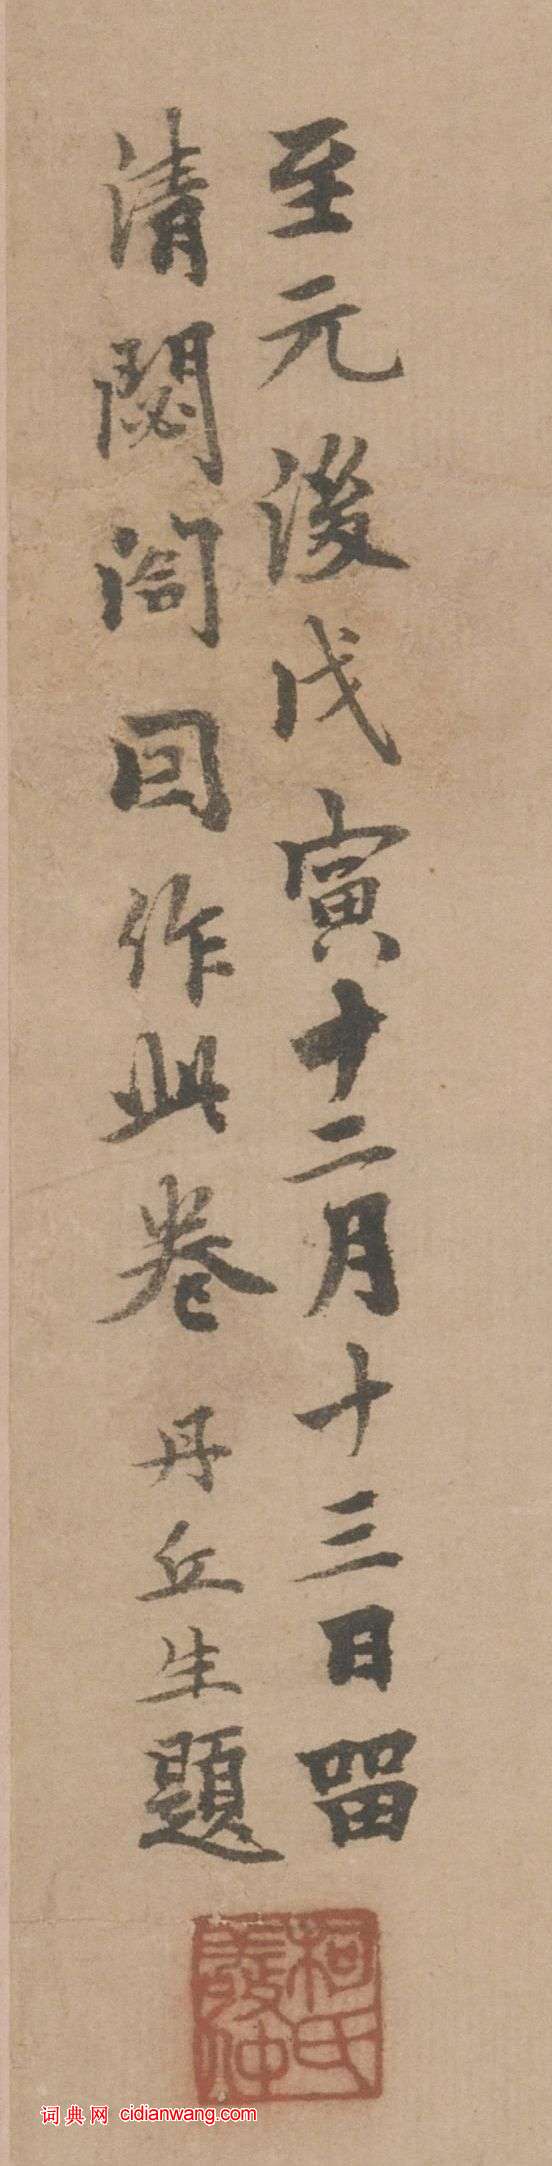 至元後戊寅十二月十三日留
清閟閣回作此卷 丹丘生題
柯氏敬仲
词典网 cidianwang.com